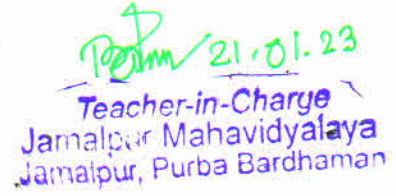 21.01.23
Teacher-in-Charge
Jamalpur Mahavidyalaya
Jamalpur, Purba Bardhaman